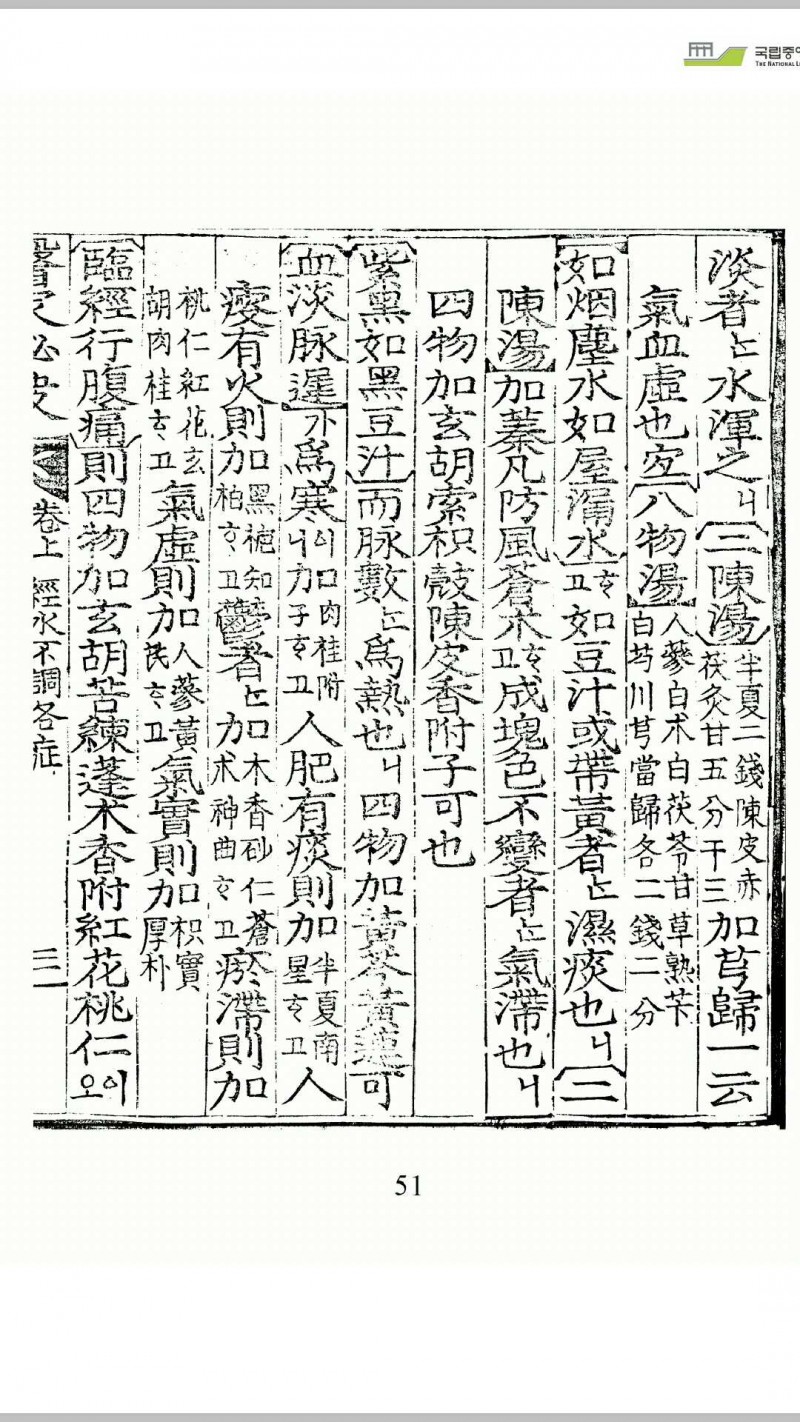 국립중
THE NATIONAL L
淡者匕水渾之ㄐ二陳湯半夏二錢陳皮赤茯灸甘五分干三加芎歸一云
氣血虛也宜八物湯人蔘白朮白茯苓甘草熟芐白芍川芎當歸各二錢二分
如烟塵水如屋漏水ㅎㄱ如豆汁或帶黃者匕濕痰也ㄐ二
陳湯加蓁凡防風蒼朮ㅎㄱ成塊色不變者匕氣滯也ㄐ
四物加玄胡索枳殼陳皮香附子可也
紫黑如黑豆汁而脉數匕爲熱也ㄐ四物加黃芩黃連可
血淡脉遲亇爲寒이ㄐ加肉桂附子ㅎㄱ人肥有痰則加半夏南星ㅎㄱ人
瘦有火則加黑梔知柏ㅎㄱ鬱者匕加木香砂仁蒼朮神曲ㅎㄱ瘀滯則加
桃仁紅花玄胡肉桂ㅎㄱ氣虛則加人蔘黃芪ㅎㄱ氣實則加枳實厚朴
臨經行腹痛則四物加玄胡苦練蓬朮香附紅花桃仁이오
卷上 經水不調各症
51